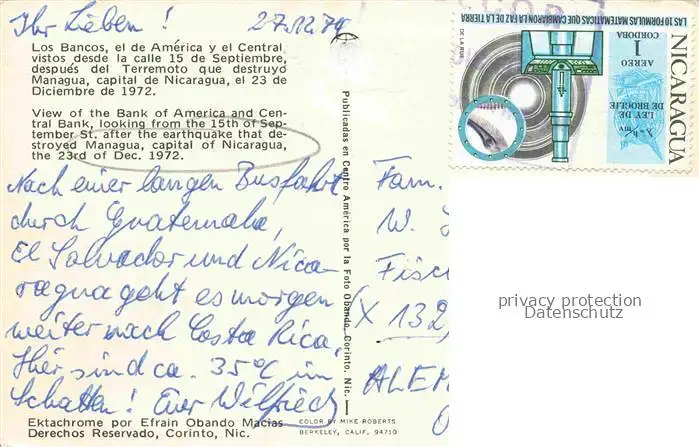 Ihr Lieben! 27.12.79
Los Bancos, el de América y el Central
vistos desde la calle 15 de Septiembre,
después del Terremoto que destruyo
Managua, capital de Nicaragua, el 23 de
Diciembre de 1972.
View of the Bank of America and Cen-
tral Bank, looking from the 15th of Sep-
tember St. after the earthquake that de-
stroyed Managua, capital of Nicaragua,
the 23rd of Dec. 1972.
Nach einer langen Busfahrt
durch Guatemala,
El Salvador und Nica-
ragua geht es morgen
weiter nach Costa Rica.
Hier sind ca. 35°C im
Schatten! Euer Wilfried
Ektachrome por Efrain Obando Macias
Derechos Reservado, Corinto, Nic.
COLOR BY MIKE ROBERTS
BERKELEY, CALIF. 94710
Publicadas en Centro América por la Foto Obando, Corinto, Nic.
Fam.
W.
Fisc
(X 132
ALEM
LAS 10 FORMULAS MATEMATICAS QUE CAMBIARON LA FAZ DE LA TIERRA
DE LA RUE
NICARAGUA
1
CORDOBA
AEREO
LEY DE
DE BROGLIE
privacy protection
Datenschutz